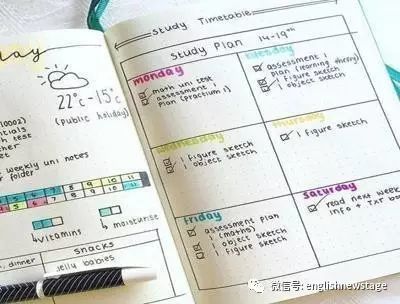 day
22°c - 15°c
(public holiday)
10002)
test
weekly uni notes
folder
5 6 7 8 9 10 11
5 6 7 8 9 10 11
vitamins
moisturise
snacks
dinner
jelly babies
Study Timetable
Study Plan 14-19th
monday
math uni test
assessment 1
plan (practium 1)
tuesday
assessment 1
plan (learning theory)
1 figure sketch
1 object sketch
wednesday
1 figure sketch
1 object sketch
thursday
1 figure sketch
friday
assessment plan
1 (maths)
1 object sketch
1 figure sketch
saturday
read next week
info + txt
微信号: englishnewstage